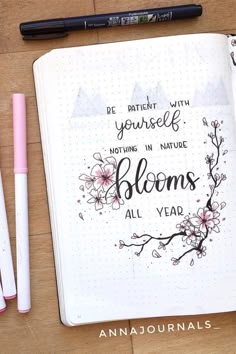 BE PATIENT WITH
yourself.
NOTHING IN NATURE
blooms
ALL YEAR
ANNAJOURNALS_